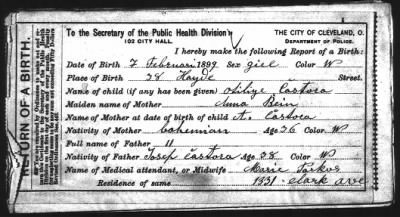 To the Secretary of the Public Health Division
102 CITY HALL.
THE CITY OF CLEVELAND, O.
DEPARTMENT OF POLICE.
I hereby make the following Report of a Birth:
Date of Birth 7 Februari 1899 Sex girl Color W
Place of Birth 38 Hayde Street.
Name of child (if any has been given) Otilije Castora
Maiden name of Mother Anna Bein
Name of Mother at date of birth of child A. Castora
Nativity of Mother bohemian Age 36 Color W
Full name of Father 11
Nativity of Father Josep Castora Age 38 Color W
Name of Medical attendant, or Midwife Marie Parkos
Residence of same 1831 - clark ave
RETURN OF A BIRTH.